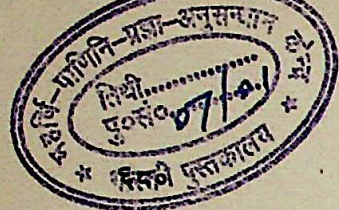 महर्षि-पाणिनि-प्रज्ञा-अनुसन्धान केन्द्र
तिथी..............
पु०सं०
पुस्तकालय